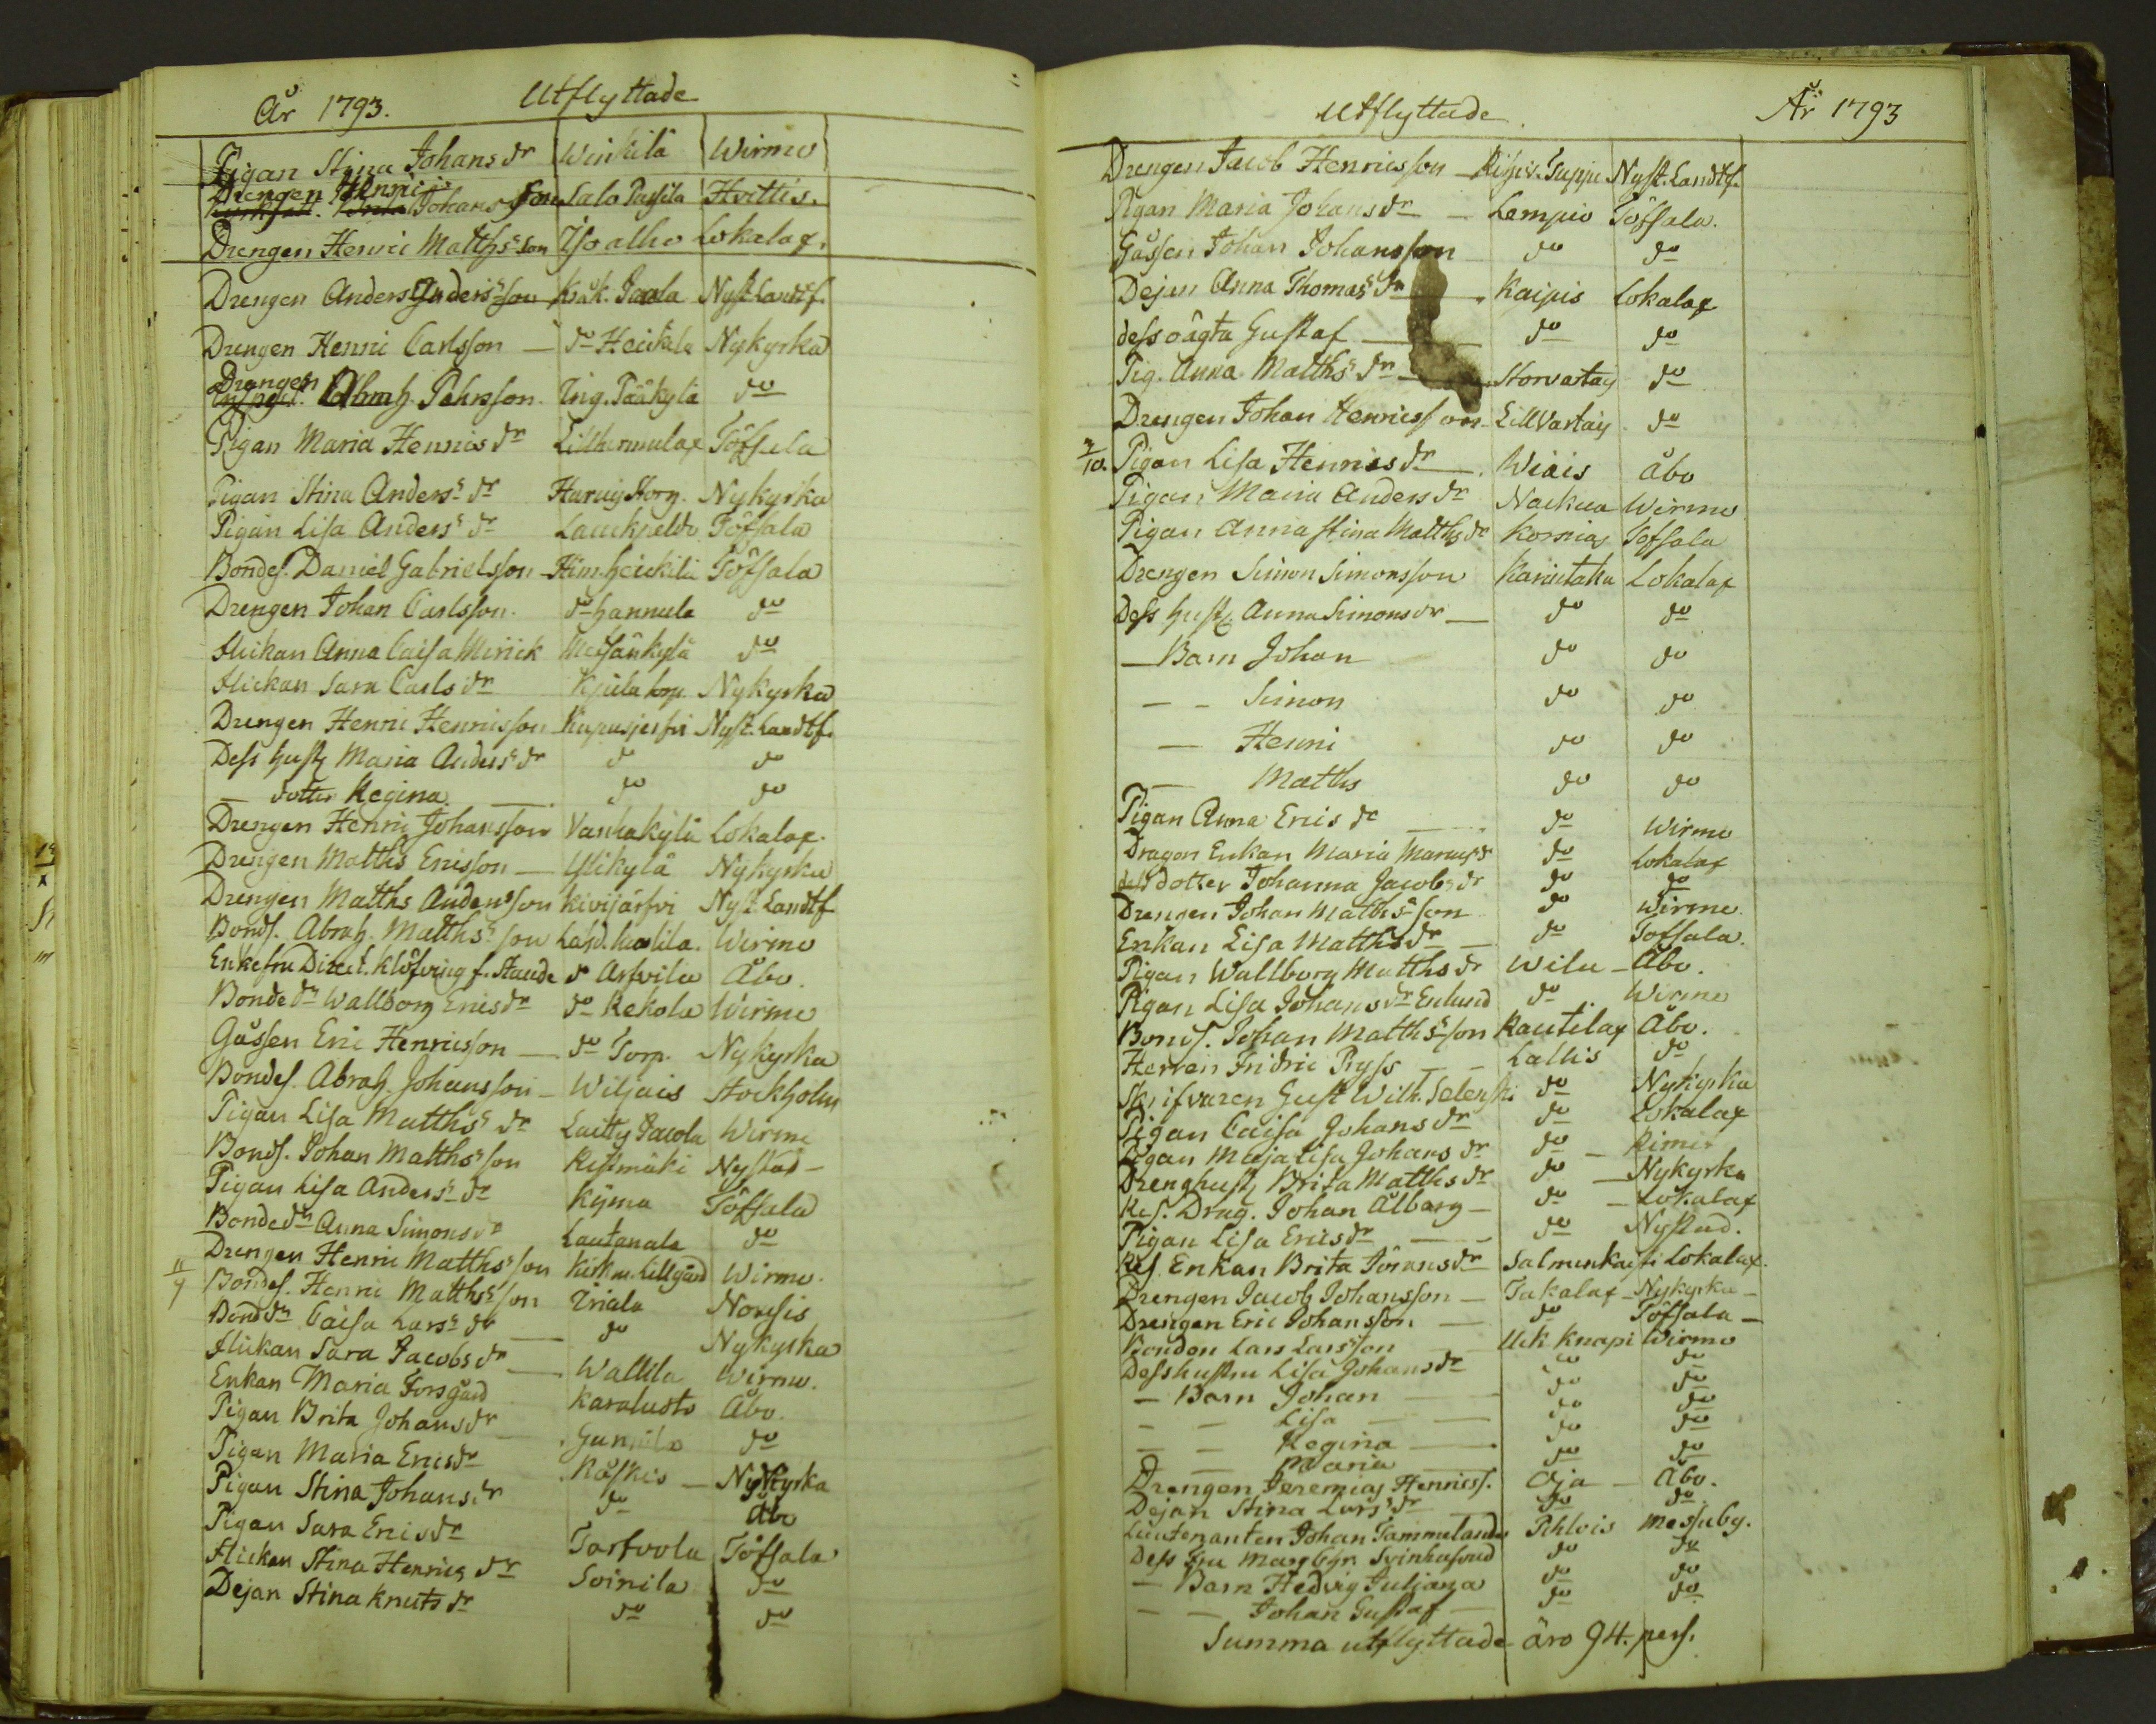 År 1793. Utflyttade
Pigan Stina Johans dr Winkilä Wirmo
Drengen Henric Johans Son Salo Passila Hvittis.
Drengen Henric Matths son Isoalho Lokalax.
Drengen Anders Anders son Kråk. Jaala Nyst. Landtf.
Drengen Henric Carlsson — do Heickilä Nykyrka
Drengen Abrah. Pehrsson Ing. Pääkylä do
Pigan Maria Henrics dr Lilthermulax Töfsala
Pigan Stina Anders dr Nykyrka
Pigan Lisa Anders dr Töfsala
Bondes. Daniel Gabrielsson Him. heickilä Töfsala
Drengen Johan Carlsson. do hannula do
Flickan Anna Caisa Mirick Meisänkylä do
Flickan Sara Carls dr Kjula torp. Nykyrka
Drengen Henric Henricsson Nyst. Landtf.
Dess hust. Maria Anders dr do do
— dotter Regina — do do
Drengen Henric Johansson Vanhakylä Lokalax.
Drengen Matths Ericsson — Ylikylä Nykyrka
Drengen Matths Anders son Kivijärfvi Nyst. Landtf
Bonds. Abrah. Matths son Wirmo
Enkefru Direct. Klöfving f. Staude do Arfvila Åbo.
Bonde dr Wallborg Erics dr do Kekola Wirmo
Gossen Eric Henricsson — do Torp. Nykyrka
Bondes. Abrah. Johansson — Wiljais Stockholm
Pigan Lisa Matths dr Laitis Jacola Wirmo
Bonds. Johan Matths son Ristimäki Nystad —
Pigan Lisa Anders dr Kyma Töfsala
Bonde dr Anna Simons dr Lautanala do
Drengen Henric Matths son Kirkm. Lillgård Wirmo.
11/9 Bondes. Henric Matths son Iriala Nousis
Bond dr Caisa Lars dr — do Nykyrka
Flickan Sara Jacobs dr — Wallila Wirmo.
Enkan Maria Forsgård Karalusto Åbo.
Pigan Brita Johans dr — Gunnila do
Pigan Maria Erics dr Käfkis — Nykyrka
Pigan Stina Johans dr do Åbo
Pigan Sara Erics dr Tortvola Töfsala
Flickan Stina Henrics dr Soinila do
Dejan Stina Knuts dr do do
Utflyttade. År 1793
Drengen Jacob Henricsson — Nyst. Landtf.
Pigan Maria Johans dr — Lempio Töfsala.
Gossen Johan Johansson do do
Dejan Anna Thomas dr Kaipis Lokalax
dess oägta Gustaf — do do
Pig. Anna Matths dr Storvartay do
Drengen Johan Henricsson Lillvartay do
3/10. Pigan Lisa Henrics dr — Wiais Åbo
Pigan Maria Anders dr Naukua Wirmo
Pigan Anna Stina Matths dr Kornias Töfsala
Drengen Simon Simonsson Karintaka Lokalax
Dess hust. Anna Simons dr — do do
— Barn Johan do do
— — Simon do do
— Henric do do
— Matths do do
Pigan Anna Erics dr — do Wirmo
Dragon Enkan Maria do Lokalax
dess dotter Johanna Jacobs dr do do
Drengen Johan Matths son do Wirmo.
Enkan Lisa Matths dr — do Töfsala.
Pigan Wallborg Matths dr Wilu — Åbo.
Pigan Lisa Johans dr Enlund do Wirmo
Bonds. Johan Matths son Rautilax Åbo.
Herren Fridric Pryss — — Lallis do
Skrifvaren Gust. Wilh. do Nykyrka
Pigan Caisa Johans dr do Lokalax
Pigan Maja Lisa Johans dr do — Rimito
Drenghust. Brita Matths dr do — Nykyrka
Res. Drag. Johan Ålbarg — do — Lokalax
Pigan Lisa Erics dr — do Nystad.
Res Enkan Brita Jörans dr Lokalax.
Drengen Jacob Johansson — Takalax — Nykyrka —
Drengen Eric Johansson — do Töfsala —
Bonden Lars Larsson Uck Knapi Wirmo
Dess hustru Lisa Johans dr do do
— Barn Johan — do do
— — Lisa — — do do
— — Regina — do do
— — Maria — do do
Drengen Jeremias Henricss. Oja — Åbo.
Dejan Stina Lars dr — do do
Lieutenanten Johan Tammelander Pihlois Messuby.
Dess fru Svinhufvud do do
— Barn Hedvig Juliana do do
— — Johan Gustaf — do do
Summa utflyttade äro 94. pers.